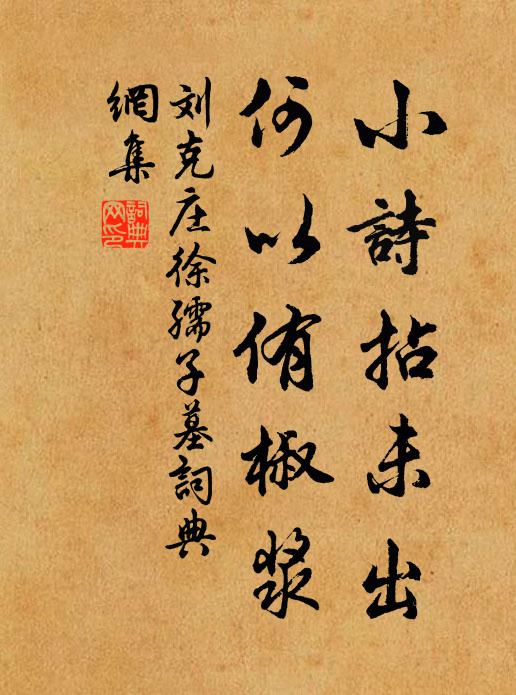 小詩拈未出
何以侑椒漿
刘克庄徐孺子墓詞典
網集
詞典
网印